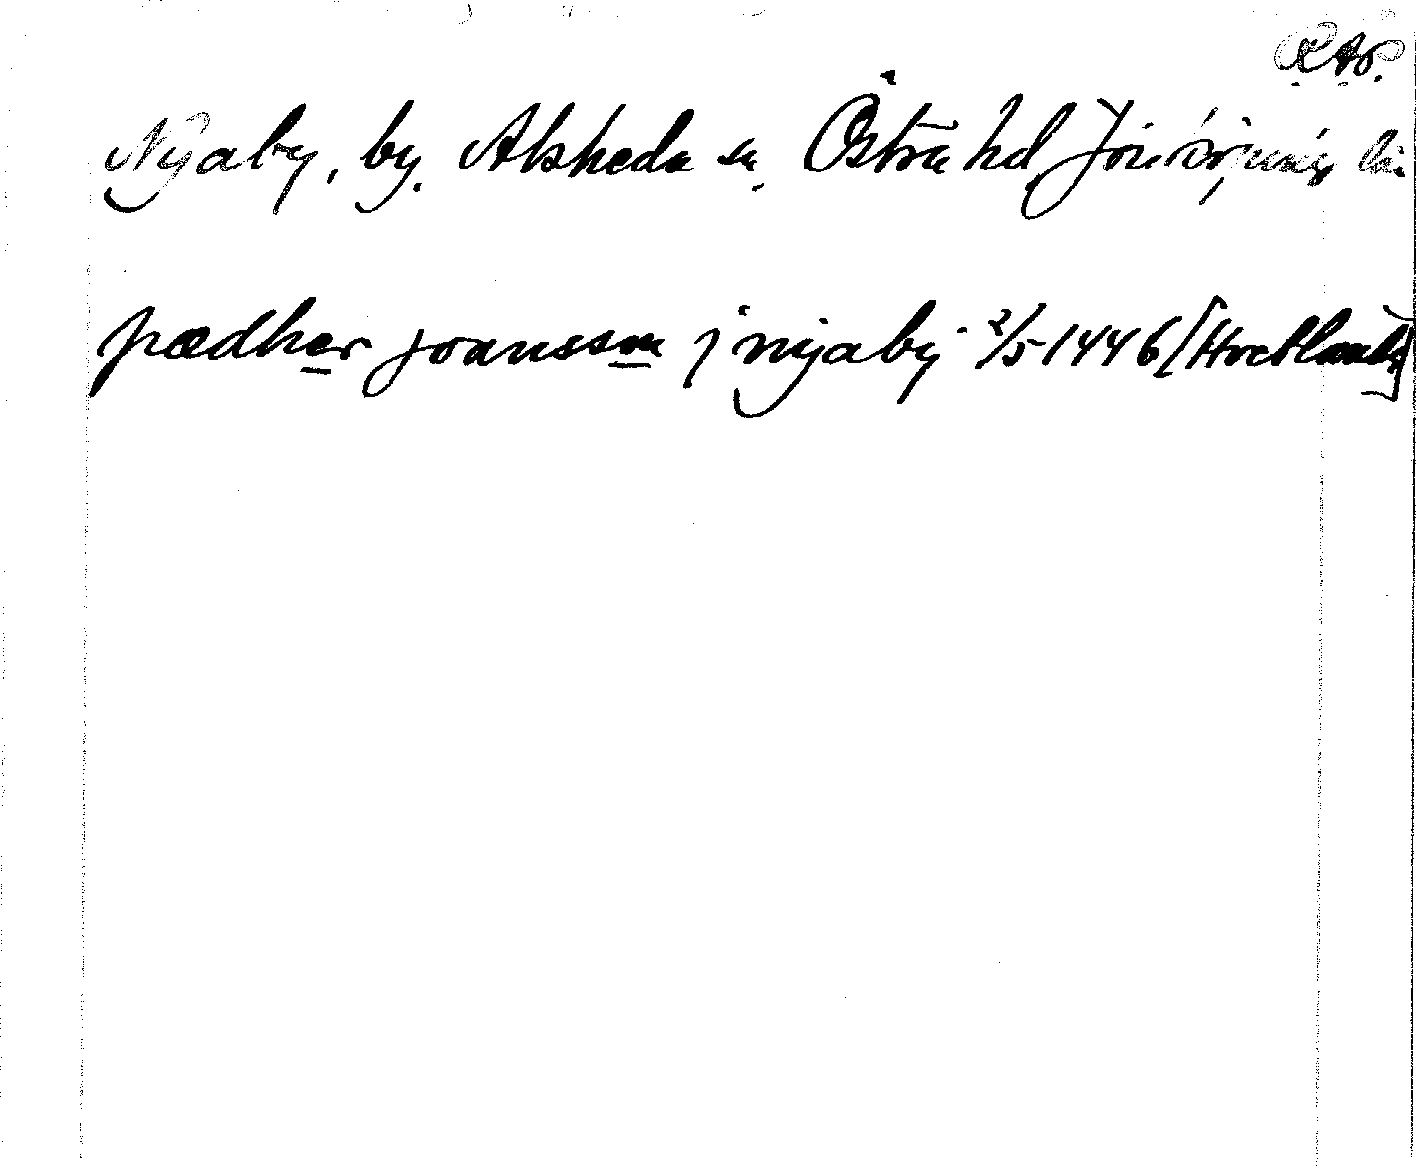 RAp.
Nyaby, by. Alsheda sn. Östra hd Jönköpings län
pædher joansson j nyaby 2/5 1446 [Hvetlanda]